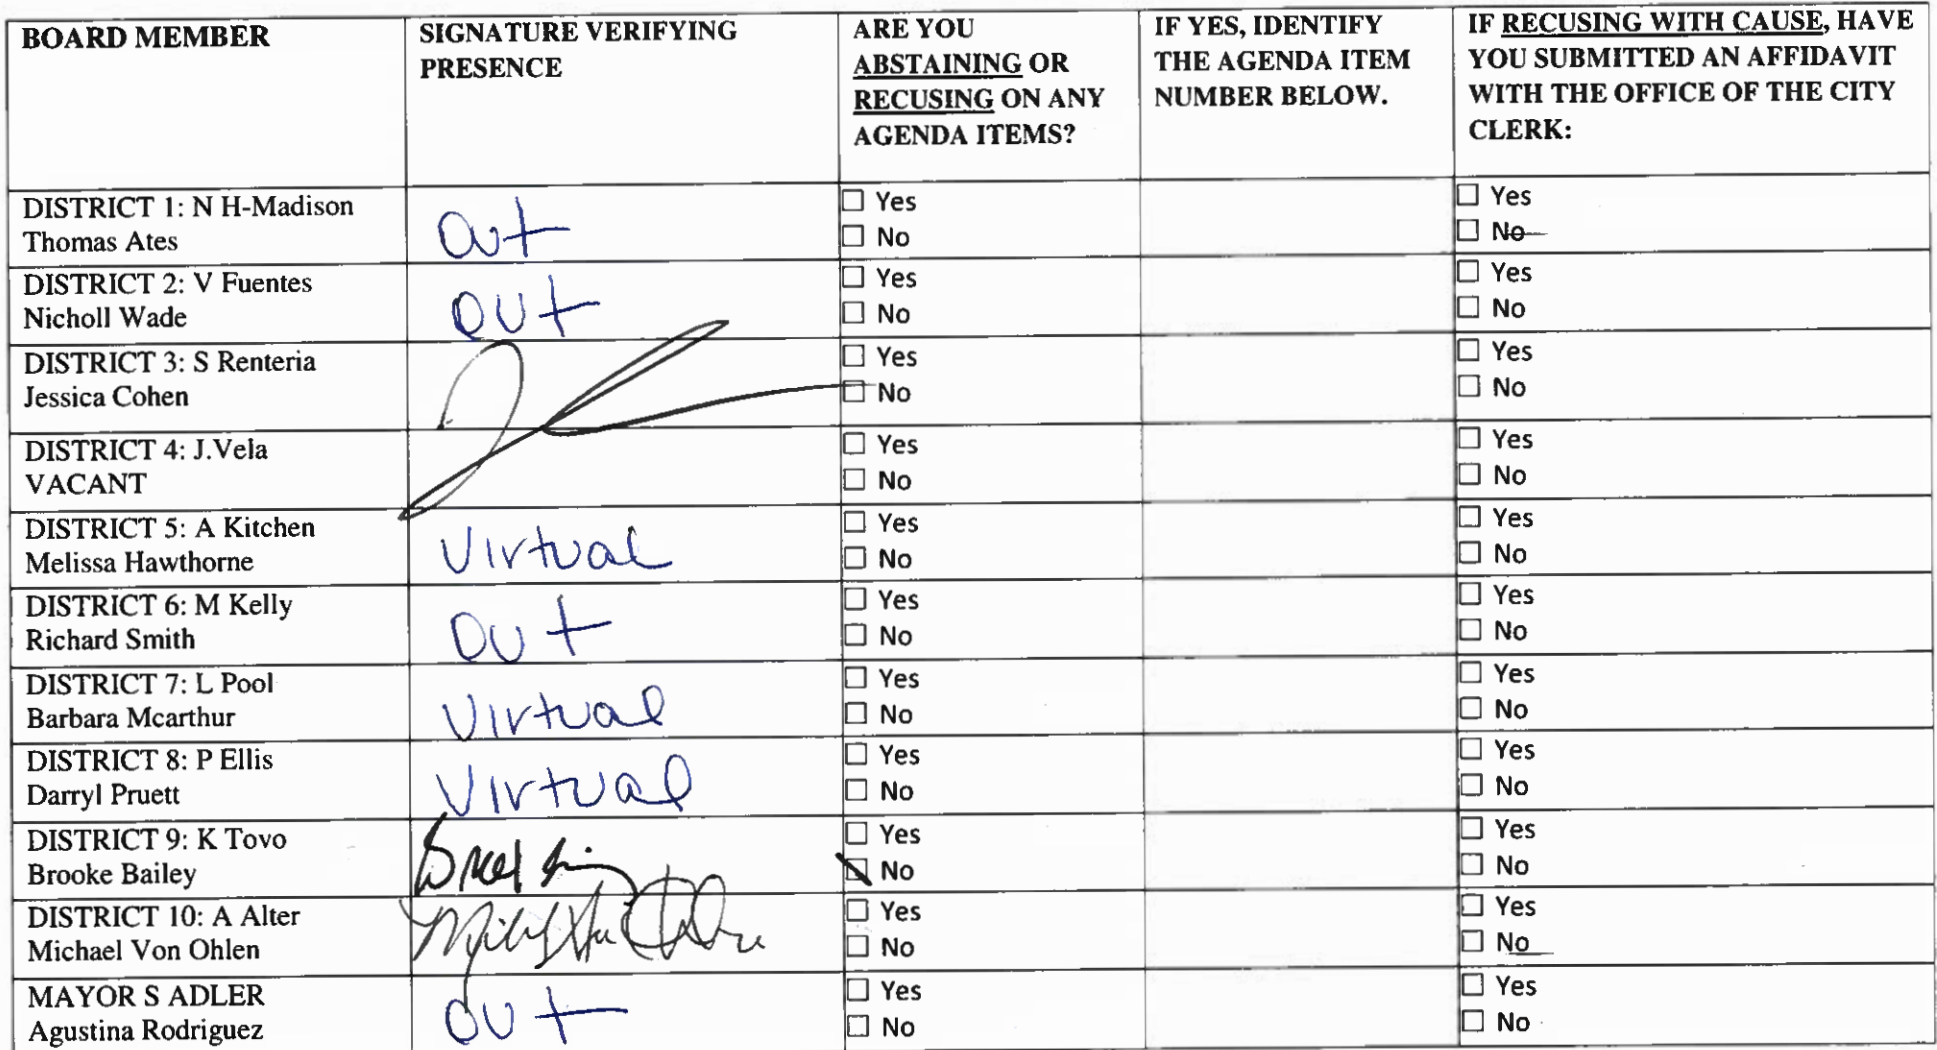 BOARD MEMBER
SIGNATURE VERIFYING
PRESENCE
ARE YOU
ABSTAINING OR
RECUSING ON ANY
AGENDA ITEMS?
IF YES, IDENTIFY
THE AGENDA ITEM
NUMBER BELOW.
IF RECUSING WITH CAUSE, HAVE
YOU SUBMITTED AN AFFIDAVIT
WITH THE OFFICE OF THE CITY
CLERK:
DISTRICT 1: N H-Madison
Thomas Ates
Out
☐ Yes
☐ No
☐ Yes
☐ No
DISTRICT 2: V Fuentes
Nicholl Wade
OUT
☐ Yes
☐ No
☐ Yes
☐ No
DISTRICT 3: S Renteria
Jessica Cohen
☐ Yes
☐ No
☐ Yes
☐ No
DISTRICT 4: J.Vela
VACANT
☐ Yes
☐ No
☐ Yes
☐ No
DISTRICT 5: A Kitchen
Melissa Hawthorne
Virtual
☐ Yes
☐ No
☐ Yes
☐ No
DISTRICT 6: M Kelly
Richard Smith
Out
☐ Yes
☐ No
☐ Yes
☐ No
DISTRICT 7: L Pool
Barbara Mcarthur
Virtual
☐ Yes
☐ No
☐ Yes
☐ No
DISTRICT 8: P Ellis
Darryl Pruett
Virtual
☐ Yes
☐ No
☐ Yes
☐ No
DISTRICT 9: K Tovo
Brooke Bailey
☐ Yes
☒ No
☐ Yes
☐ No
DISTRICT 10: A Alter
Michael Von Ohlen
☐ Yes
☐ No
☐ Yes
☐ No
MAYOR S ADLER
Agustina Rodriguez
Out
☐ Yes
☐ No
☐ Yes
☐ No